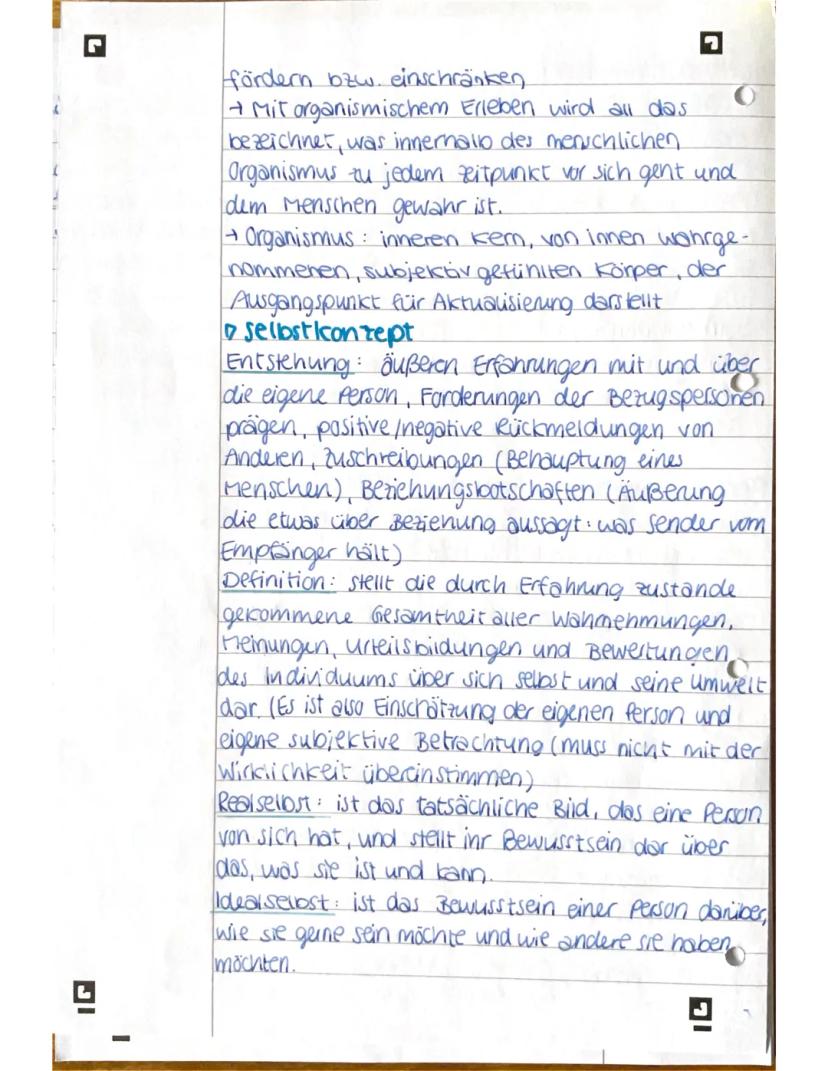 fördern bzw. einschränken
→ Mit organismischem Erleben wird all das
bezeichnet, was innerhalb des menschlichen
Organismus zu jedem Zeitpunkt vor sich geht und
dem Menschen gewahr ist.
→ Organismus: inneren Kern, von innen wahrge-
nommenen, subjektiv gefühlten Körper, der
Ausgangspunkt für Aktualisierung darstellt
▷ Selbstkonzept
Entstehung: äußeren Erfahrungen mit und über
die eigene Person, Forderungen der Bezugspersonen
prägen, positive/negative Rückmeldungen von
Anderen, Zuschreibungen (Behauptung eines
Menschen), Beziehungsbotschaften (Äußerung
die etwas über Beziehung aussagt: was Sender vom
Empfänger hält)
Definition: stellt die durch Erfahrung zustande
gekommene Gesamtheit aller Wahrnehmungen,
Meinungen, Urteilsbildungen und Bewertungen
des Individuums über sich selbst und seine Umwelt
dar. (Es ist also Einschätzung der eigenen Person und
eigene subjektive Betrachtung (muss nicht mit der
Wirklichkeit übereinstimmen)
Realselbst: ist das tatsächliche Bild, das eine Person
von sich hat, und stellt ihr Bewusstsein dar über
das, was sie ist und kann.
Idealselbst: ist das Bewusstsein einer Person darüber,
wie sie gerne sein möchte und wie andere sie haben
möchten.